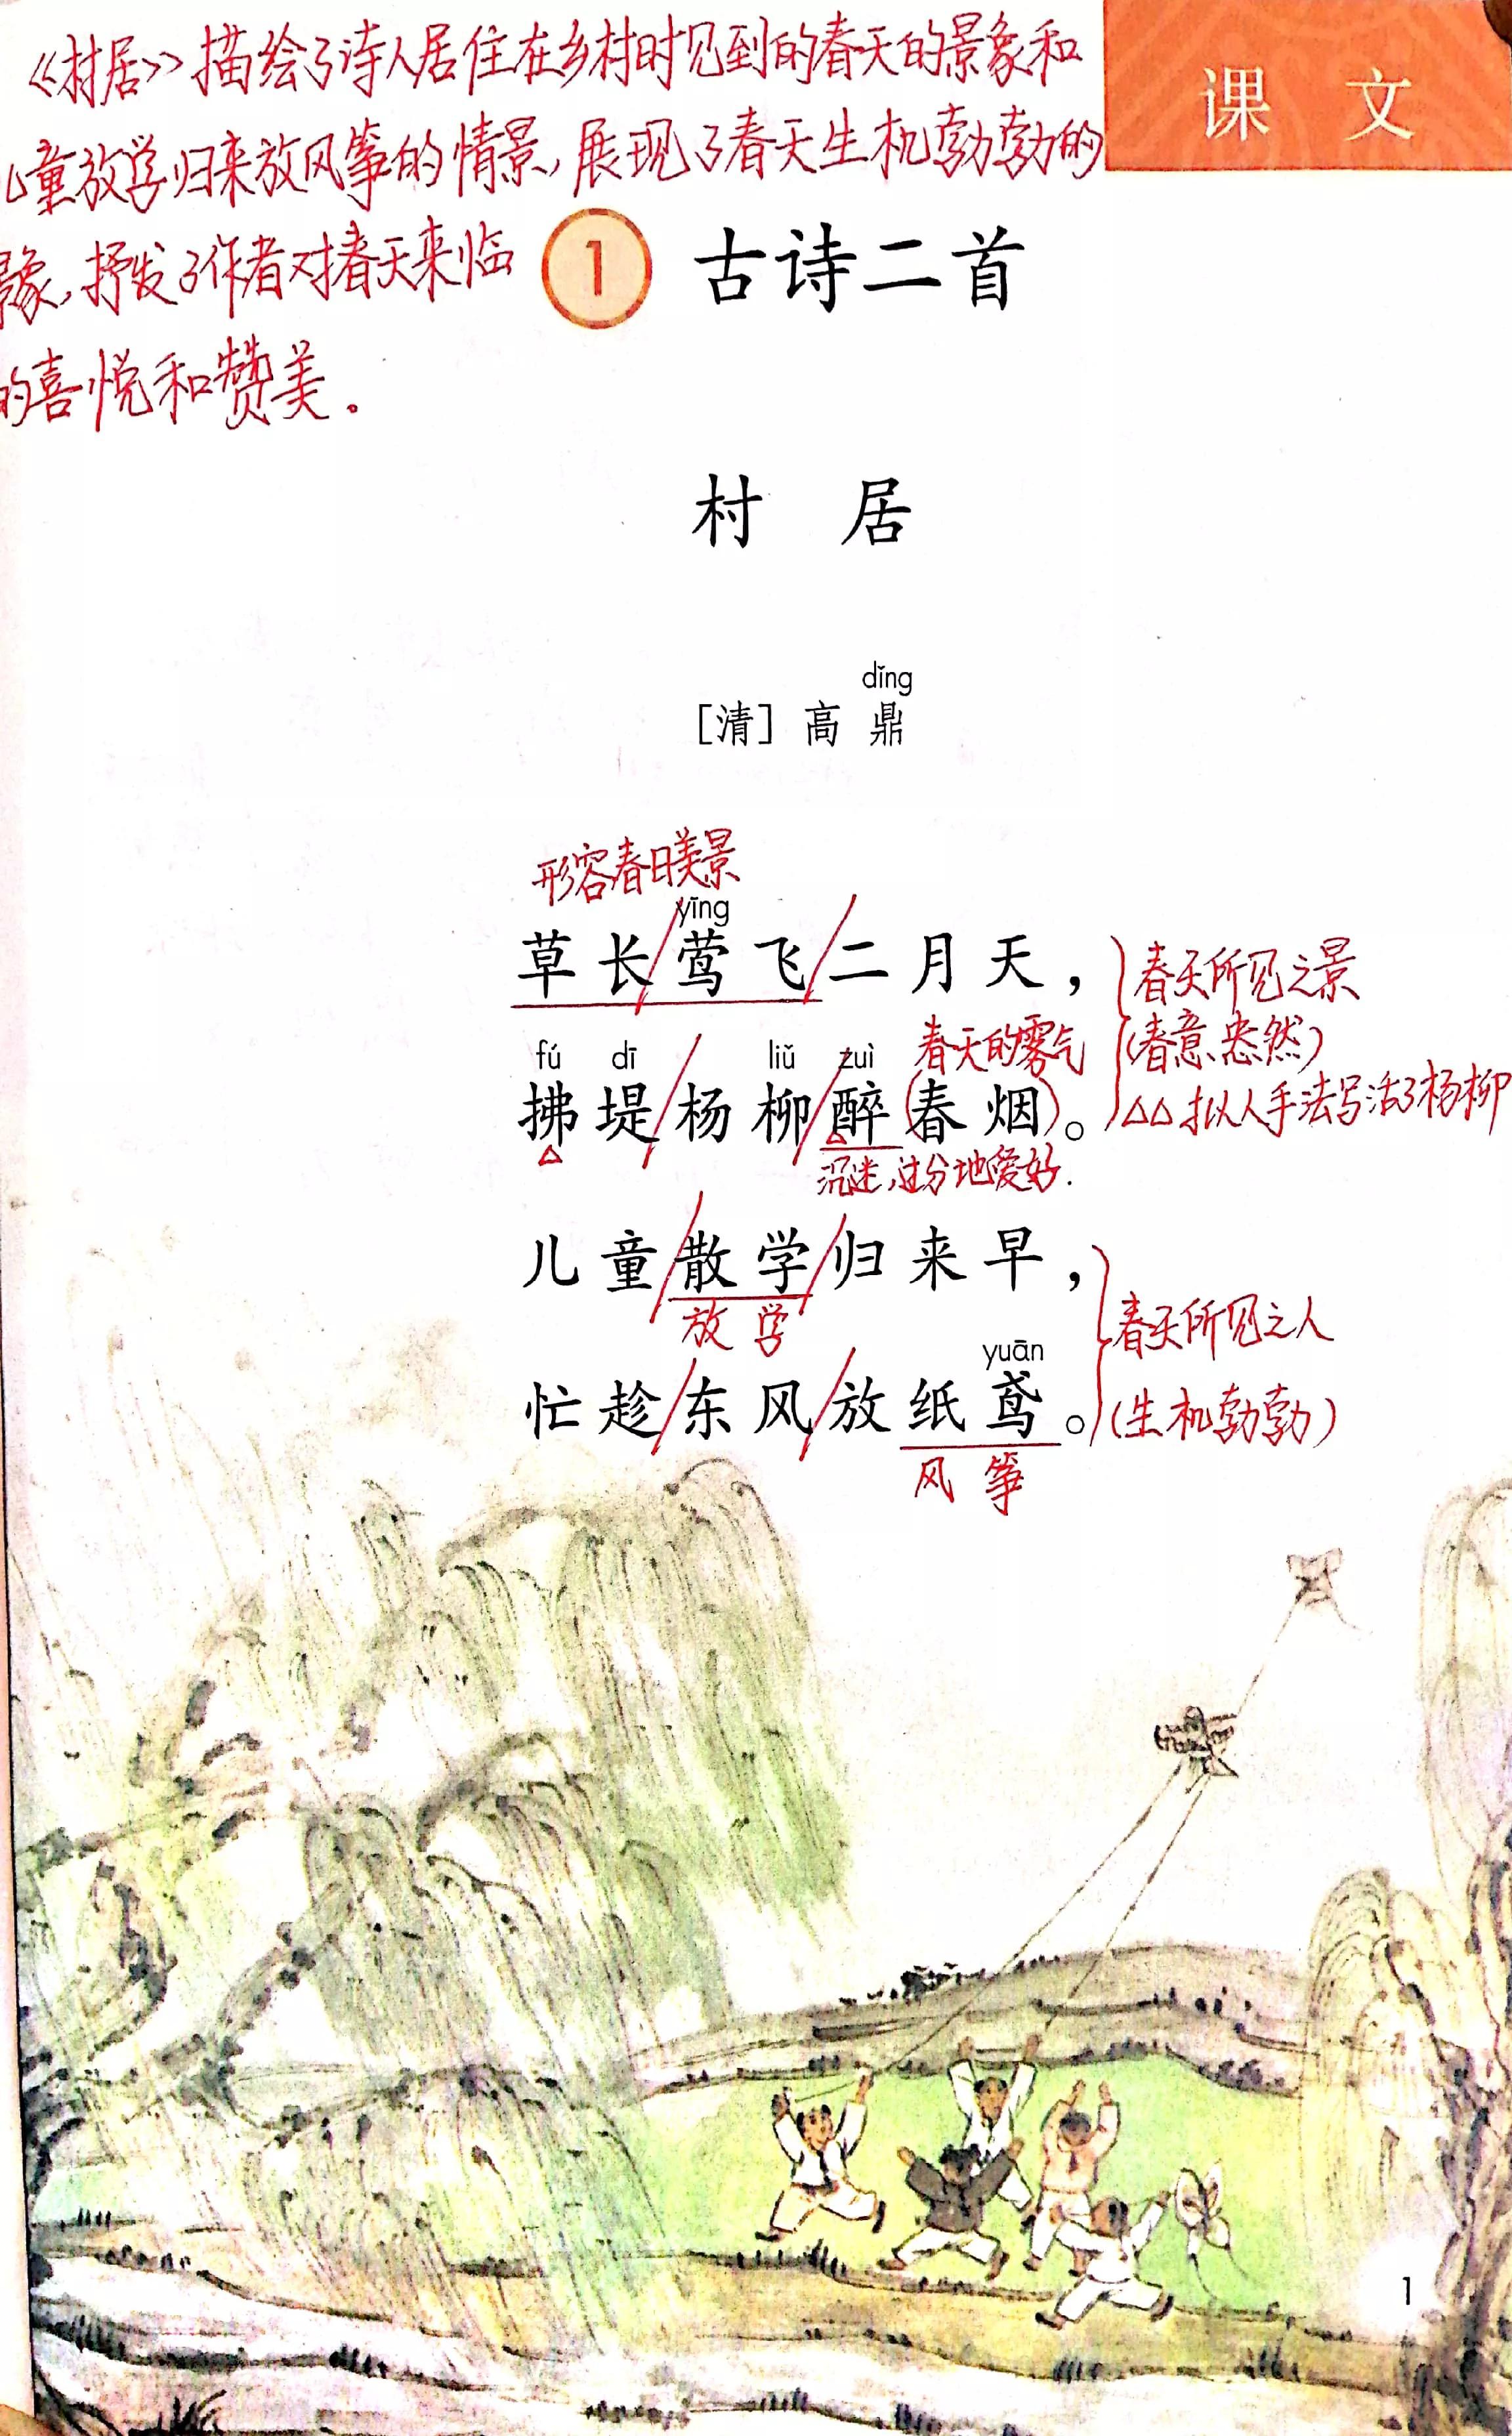 《村居》描绘了诗人居住在乡村时见到的春天的景象和
课 文
儿童放学归来放风筝的情景,展现了春天生机勃勃的
景象,抒发了作者对春天来临
的喜悦和赞美。
1 古诗二首
村 居
dǐng
[清] 高 鼎
形容春日美景
yīng
草长/莺飞/二月天,
春天所见之景
fú dī liǔ zuì
春天的雾气
(春意盎然)
拂堤/杨柳/醉(春烟)。
△△拟人手法写活了杨柳
沉迷,过分地爱好.
儿童/散学/归来早,
放 学
春天所见之人
yuān
忙趁/东风/放纸鸢。
(生机勃勃)
风 筝
1